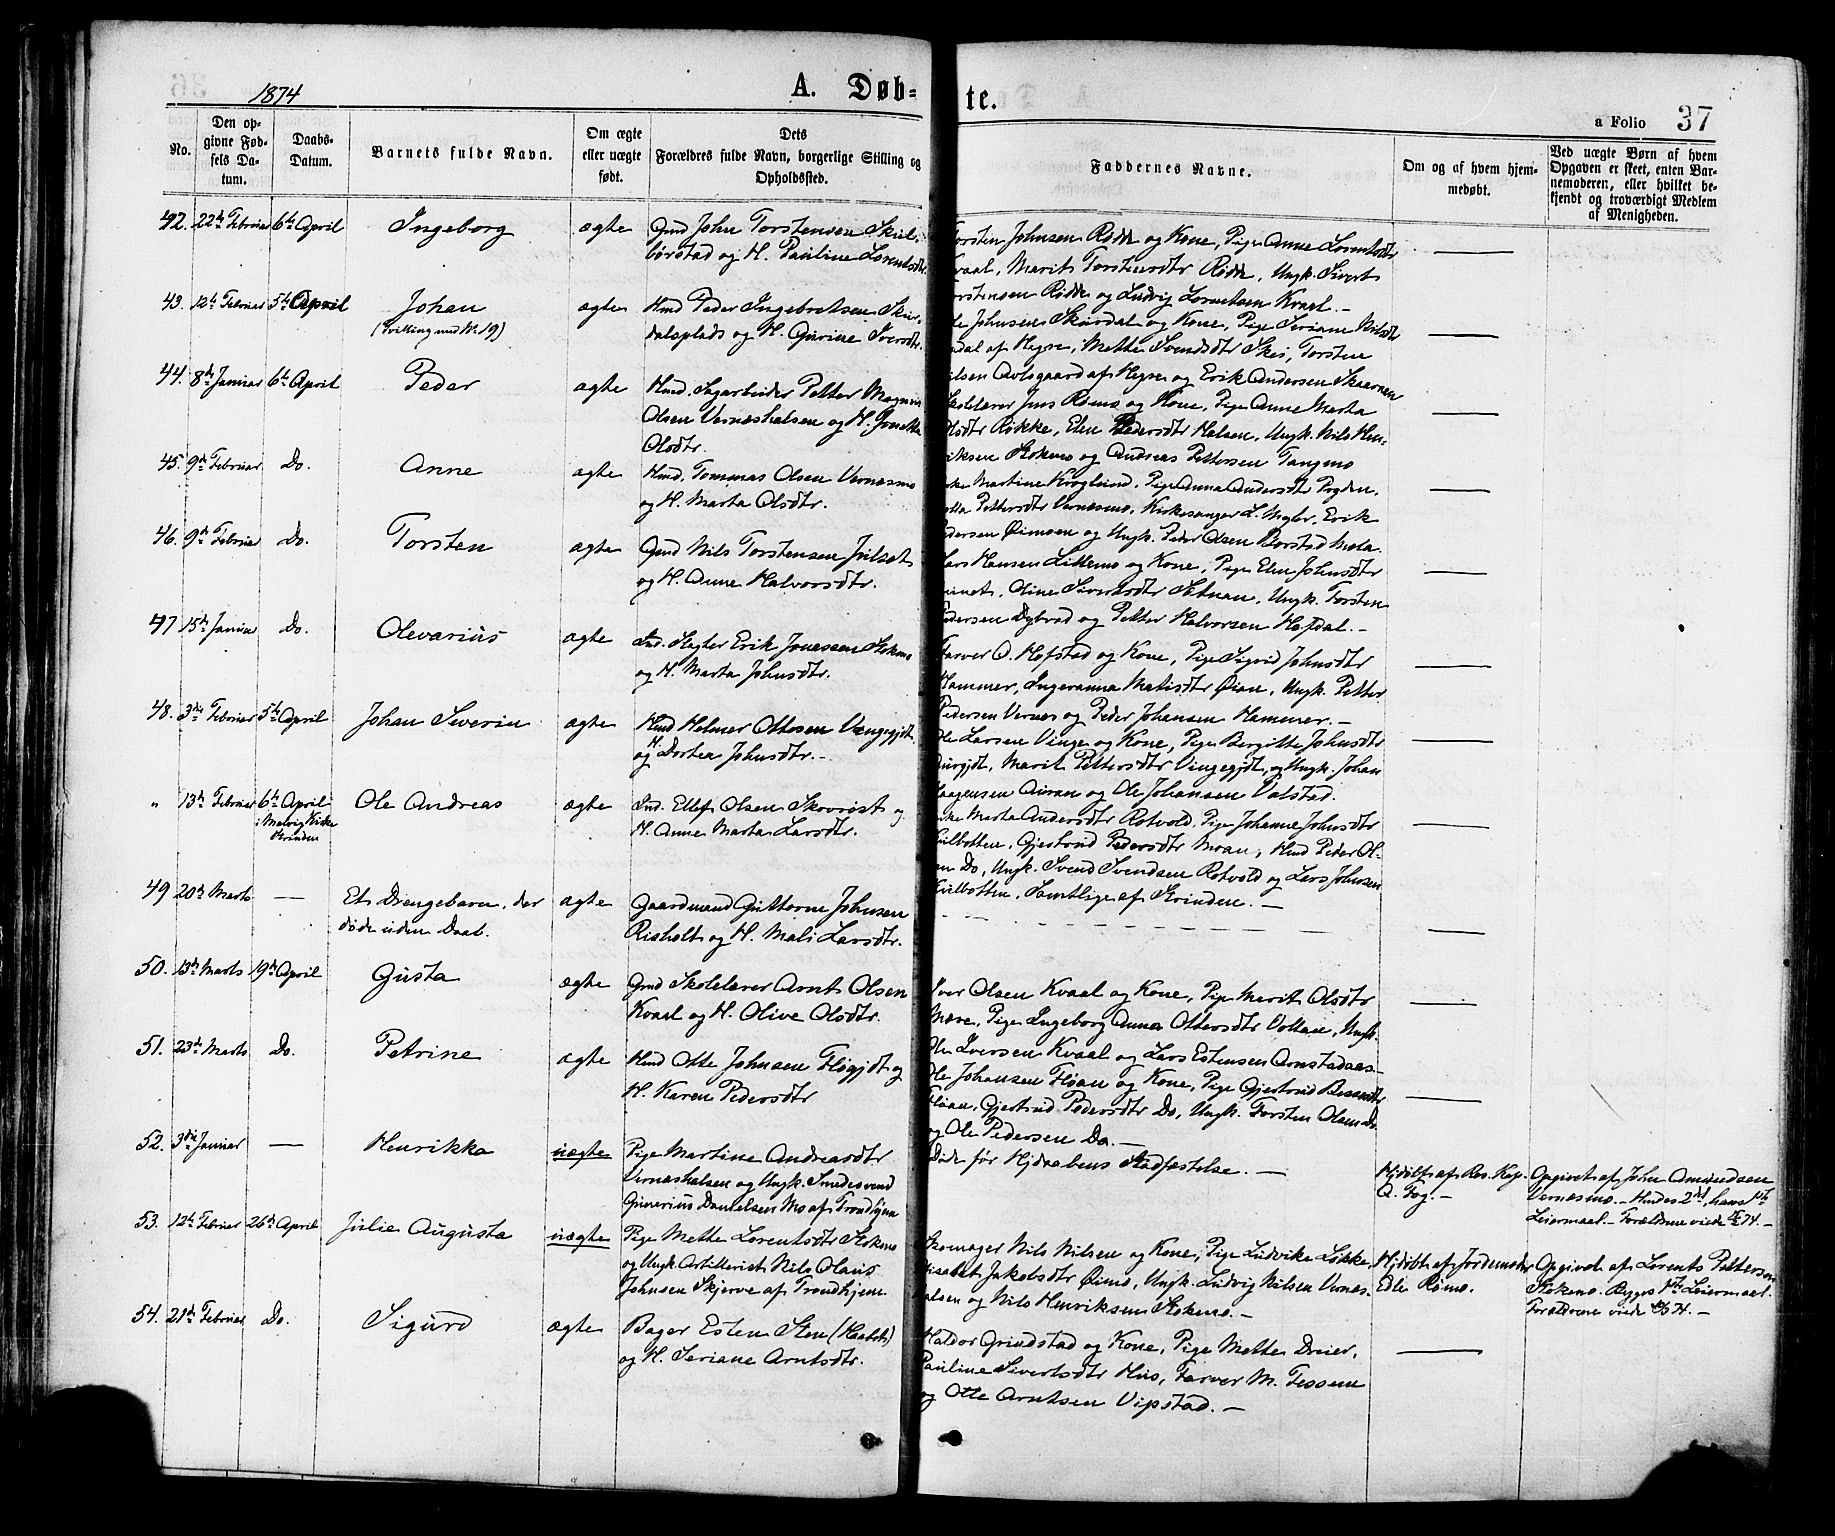 1874
A. Døb-
te.
a Folio 37
No.
Den op-
givne Fød-
sels Da-
tum.
Daabs-
Datum.
Barnets fulde Navn.
Om ægte
eller uægte
født.
Dets
Forældres fulde Navn, borgerlige Stilling og
Opholdssted.
Faddernes Navne.
Om og af hvem hjem-
medøbt.
Ved uægte Børn af hvem
Opgaven er skeet, enten Bar-
nemoderen, eller hvilket be-
kjendt og troværdigt Medlem
af Menigheden.
42. 22de Februar 6te April Ingeborg ægte Gmd John Torstensen Skjel-
børstad og H. Pauline Lorentsdtr.
Torsten Johnsen Rødde og Kone, Pige Anne Lorentsdtr
Kvaal, Marit Torstensdtr Rødde, Ungk. Sivert
Torstensen Rødde og Ludvig Lorentsen Kvaal.-
43. 12te Februar 5te April Johan ægte Hmd Peder Ingebretsen
(Tvilling med No. 19)
dalsplads og H. Gurine Iversdtr.
Ole Johnsen Skjərdal og Kone, Pige Seriane Nilsdtr
af Hegre, Mette Svendsdtr Skei, Torsten
Nilsen Avlsgaard af Hegre og Erik Andersen
44. 8de Januar 6te April Peder ægte Hmd. Sagarbeider Petter Magnus
Olsen Vernæshalsen og H. Jonetta
Olsdtr.
Skolelærer Jens Rømo og Kone, Pige Anne Marta
Olsdtr Røkke, Elen Pedersdtr Halsen, Ungk. Nils Hen-
riksen Stokmo og Andreas Pettersen Tangmo
45. 9de Februar Do. Anne ægte Hmd. Tommas Olsen Vernæsmo
og H. Marta Olsdtr.
Martine Kroglund, Pige Anna Andersdtr
Pettersdtr Vernæsmo, Kirkesanger L. Møgler, Erik
Pedersen Øimoen og Ungk. Peder Olsen Borstad
46. 9de Februar Do. Torsten ægte Gmd Nils Torstensen
og H. Anne Halvorsdtr.
Lars Hansen Littlemo og Kone, Pige Elen Johnsdtr
Oline Sivertsdtr Setnan, Ungk. Torsten
Pedersen Dybvad og Petter Halvorsen Hofdal.-
47 15de Januar Do. Olevarius ægte Ind. Slagter Erik Jonassen Stokmo
og H. Marta Johnsdtr.
Farver O. Hofstad og Kone, Pige Sigrid Johnsdtr
Hammer, Ingeranna Matisdtr Øian, Ungk. Petter
Pedersen Vernæs og Peder Johansen Hammer.-
48. 3die Februar 5te April Johan Severin ægte Hmd Helmer Ottesen Vingegjdt.
og H Dortea Johnsdtr.-
Ole Larsen Vinge og Kone, Pige Bergitte Johnsdtr
Marit Pettersdtr Vingegjdt, og Ungk. Johan
Haagensen Auran og Ole Johansen Valstad.
" 13de Februar 6te April Ole Andreas ægte Ind. Ellef Olsen Skovrøst og
i Malvig Kirke
Strinden
H. Anne Marta Larsdtr.
Marta Andersdtr Rotvold, Pige Johanne Johnsdtr
Gjertrud Pedersdtr Moan, Hmd Peder Ol-
sen Do, Ungk. Svend Svendsen Rotvold og Lars Johnsen
Samtlige af Strinden.-
49 20de Marts — Et Drengebarn, der ægte Gaardmand Guttorm Johnsen
døde uden Daab.
Risholt og H. Mali Larsdtr.
50. 13de Marts 19de April Gusta ægte Gmd Skolelærer Arnt Olsen
Kvaal og H. Olive Olsdtr.
Iver Olsen Kvaal og Kone, Pige Marit Olsdtr
Mære, Pige Ingeborg Anna Ottersdtr Voltan, Ungk.
Ole Iversen Kvaal og Lars Estensen Arnstadaas-
51. 23de Marts Do. Petrine ægte Hmd Otte Johnsen Fløgjdt og
H. Karen Pedersdtr
Ole Johansen Fløan og Kone, Pige Gjertrud
Fløan, Gjertrud Pedersdtr Do, Ungk. Torsten Olsen Do.
og Ole Pedersen Do.-
52. 3die Januar — Henrikka uægte Pige Martine Andreasdtr
Vernæshalsen og Ungk. Smedesvend
Gunerius Danielsen Mo af Trondhjem
Døde før Hjdaabens Stadfæstelse.-
Hjdøbt af Res. Kap.
A. Fog.-
Opgivet af John Amundsen
Vernæsmo.- Hendes 2det, hans 1ste
Leiermaal.- Forældrene viede 74.-
53. 12te Februar 26de April Julie Augusta uægte Pige Mette Lorentsdtr Stokmo
og Ungk. Artillerist Nils Olaus
Johnsen Skjerve af Trondhjem
Skomager Nils Nilsen og Kone, Pige Ludvike Løkke,
Elisabet Jakobsdtr Øimo, Ungk. Ludvig Nilsen Vernæs-
halsen og Nils Henriksen Stokmo.-
Hjdøbt af Jordemoder
Edle Rømo.
Opgivet af Lorents Pettersen
Stokmo. Begges 1ste Leiermaal.
Forældrene viede 74.-
54. 21de Februar Do. Sigurd ægte Bager Esten Sten (Haabets)
og H. Seriane Arntsdtr.
Haldor Grindstad og Kone, Pige Mette Dreier,
Pauline Sivertsdtr Hus, Farver M. Tessem
og Otte Arntsen Vipstad.-